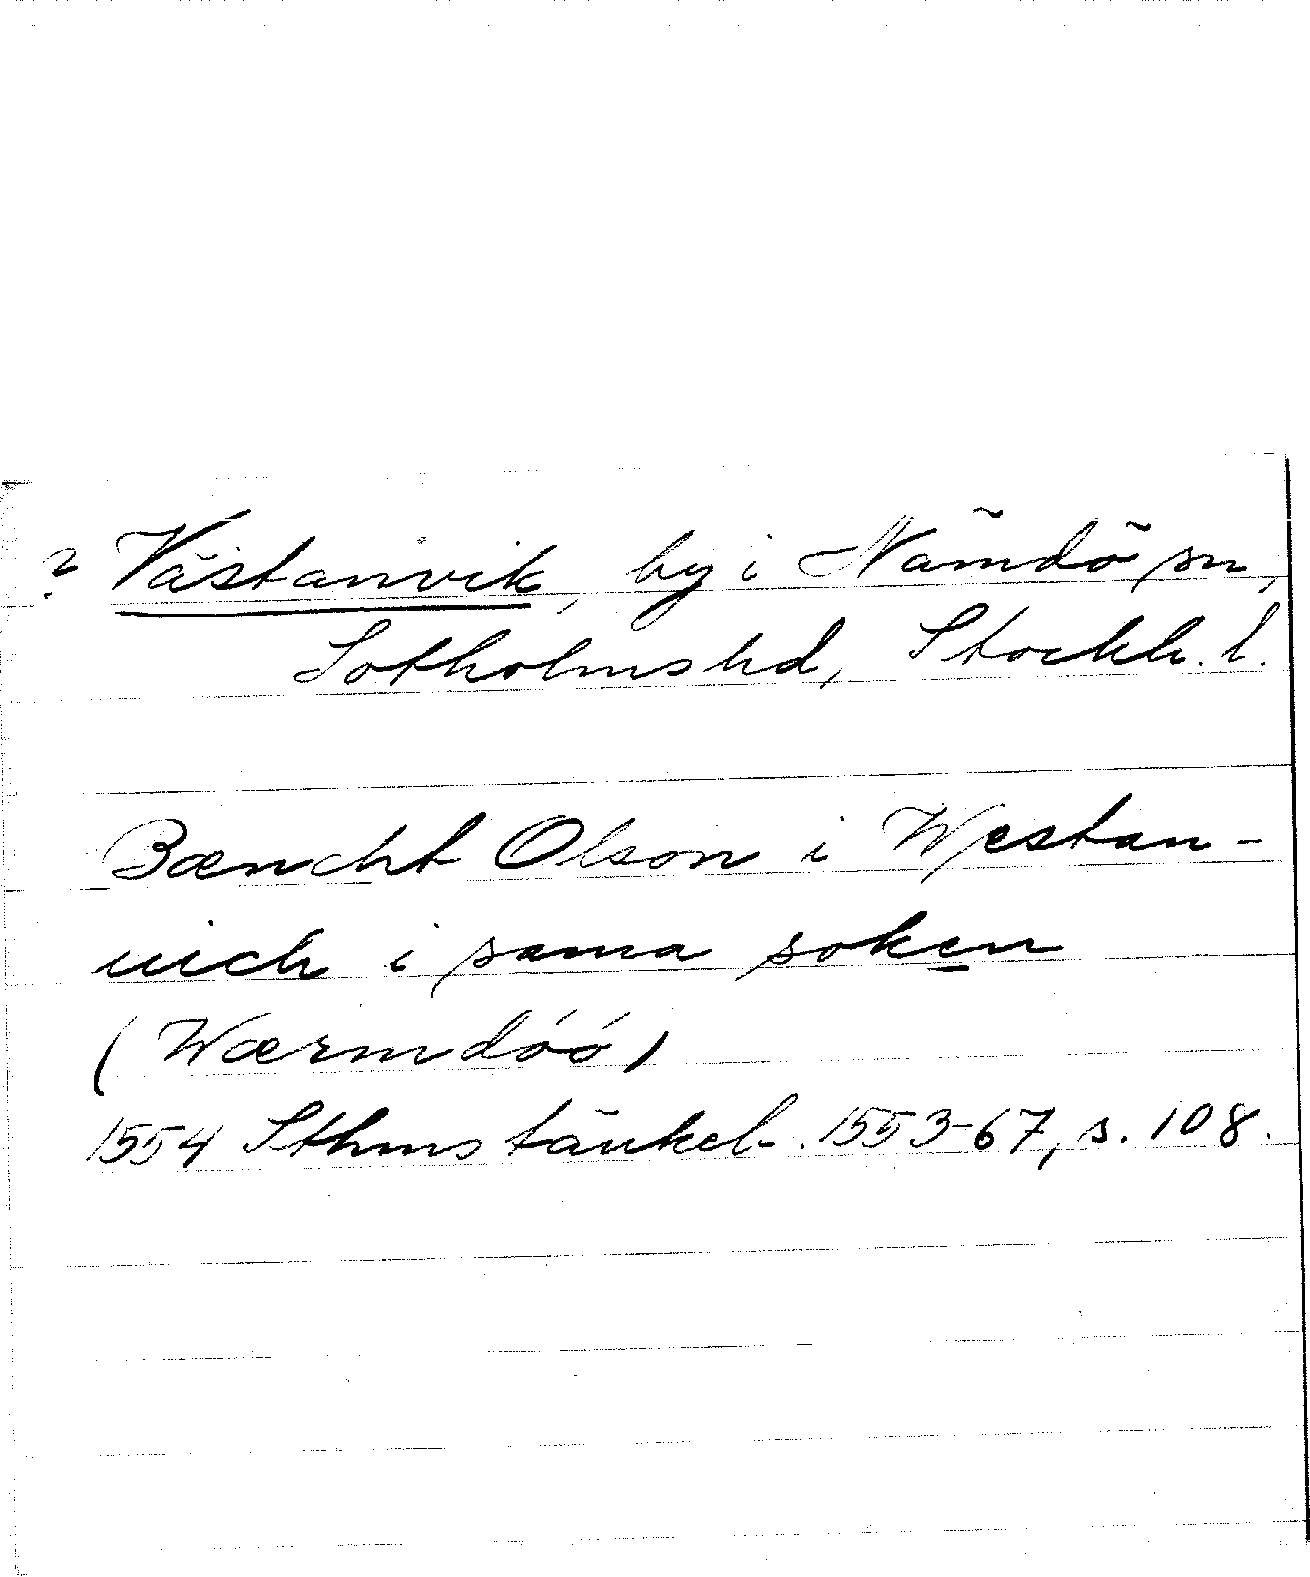 ? Västanvik, by i Nämdö sn,
Sotholms hd, Stockh. l.
Bæncht Olson i Westan-
uich i sama soken
(Wærmdóó)
1554 Sthms tänkeb. 1553-67, s. 108.